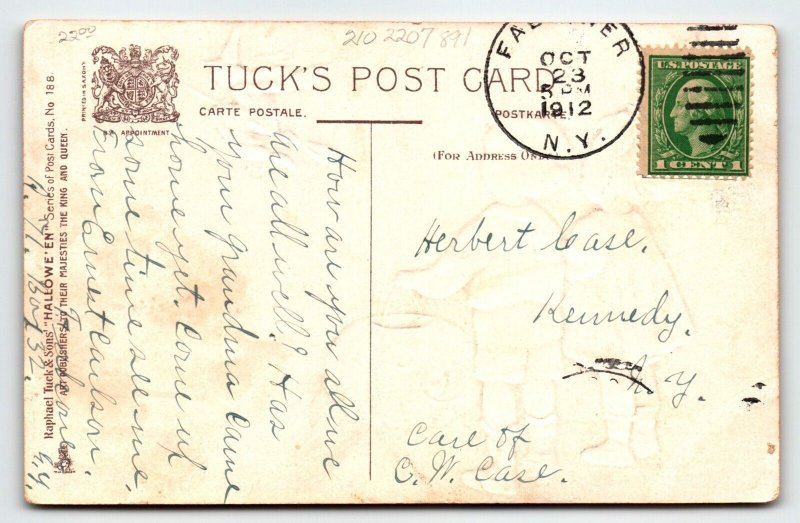 22.00
210 2207 891
TUCK'S POST CARD
CARTE POSTALE.
POSTKARTE.
(FOR ADDRESS ONLY)
BY APPOINTMENT
PRINTED IN SAXONY
Raphael Tuck & Sons' "HALLOWE'EN" Series of Post Cards, No 188.
ART PUBLISHERS TO THEIR MAJESTIES THE KING AND QUEEN.
FALCONER
OCT
23
5 PM
1912
N.Y.
U.S. POSTAGE
1 CENT 1
How are you all we
are all well? Has
your grandma came
home yet. Come up
some time see me.
From Ernest Carlson.
Box 32.
N.Y.
Herbert Case.
Kennedy.
N.Y.
Care of
C. W. Case.